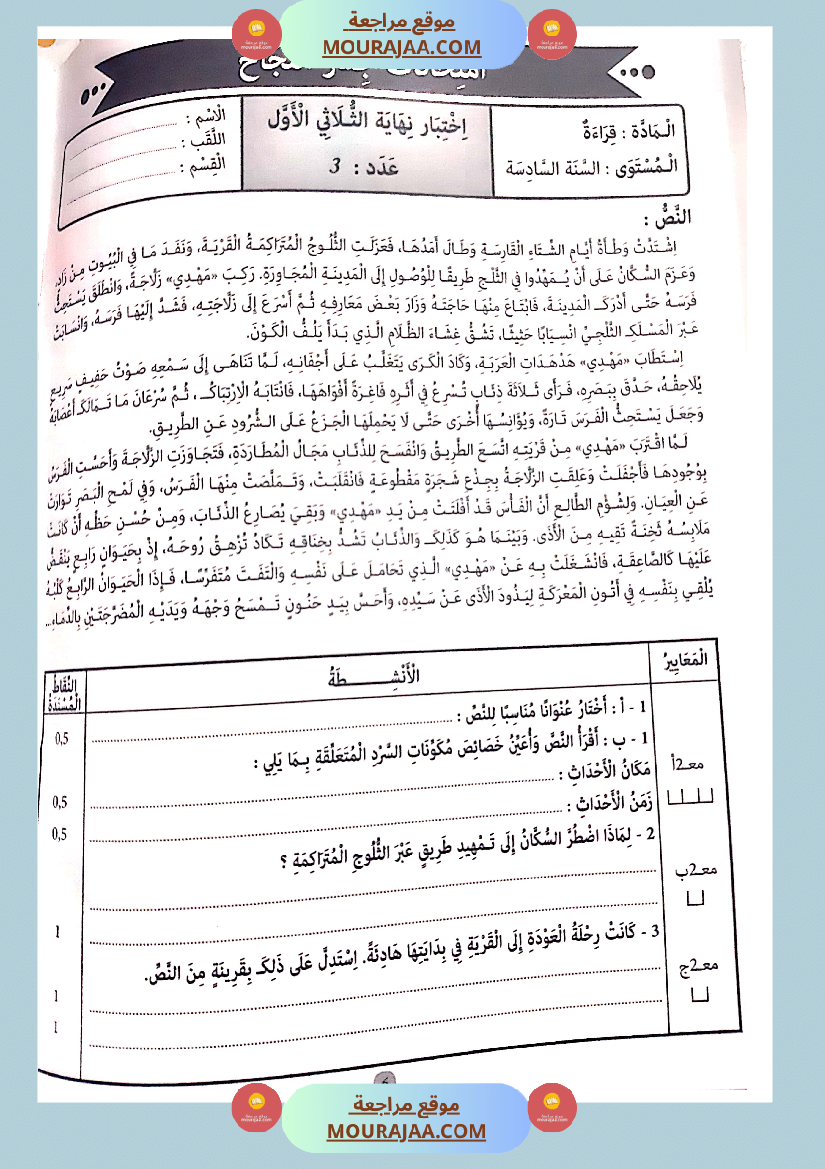 موقع مراجعة
MOURAJAA.COM
الْمَادَّة : قِرَاءَةٌ
الْمُسْتَوَى : السَّنَة السَّادِسَة
اِخْتِبَار نِهَايَة الثُّلَاثِي الْأَوَّل
عَدَد : 3
الْاسْم :
اللَّقَب :
الْقِسْم :
النَّصُّ :
اِشْتَدَّتْ وَطْأَةُ أَيَّامِ الشِّتَاءِ الْقَارِسَةِ وَطَالَ أَمَدُهَا، فَعَزَلَتِ الثُّلُوجُ الْمُتَرَاكِمَةُ الْقَرْيَةَ، وَنَفَدَ مَا فِي الْبُيُوتِ مِنْ زَادٍ،
وَعَزَمَ السُّكَّانُ عَلَى أَنْ يُمَهِّدُوا فِي الثَّلْجِ طَرِيقًا لِلْوُصُولِ إِلَى الْمَدِينَةِ الْمُجَاوِرَةِ. رَكِبَ «مَهْدِي» زَلَّاجَةً، وَانْطَلَقَ يَسْتَحِثُّ
فَرَسَهُ حَتَّى أَدْرَكَ الْمَدِينَةَ، فَابْتَاعَ مِنْهَا حَاجَتَهُ وَزَارَ بَعْضَ مَعَارِفِهِ ثُمَّ أَسْرَعَ إِلَى زَلَّاجَتِهِ، فَشَدَّ إِلَيْهَا فَرَسَهُ، وَانْسَابَتْ
عَبْرَ الْمَسْلَكِ الثَّلْجِيِّ انْسِيَابًا حَثِيثًا، تَشُقُّ غِشَاءَ الظَّلَامِ الَّذِي بَدَأَ يَلُفُّ الْكَوْنَ.
اِسْتَطَابَ «مَهْدِي» هَدْهَدَاتِ الْعَرَبَةِ، وَكَادَ الْكَرَى يَتَغَلَّبُ عَلَى أَجْفَانِهِ، لَمَّا تَنَاهَى إِلَى سَمْعِهِ صَوْتُ حَفِيفٍ سَرِيعٍ
يُلَاحِقُهُ، حَدَّقَ بِبَصَرِهِ، فَرَأَى ثَلَاثَةَ ذِئَابٍ تُسْرِعُ فِي أَثَرِهِ فَاغِرَةً أَفْوَاهَهَا، فَانْتَابَهُ الْاِرْتِبَاكُ، ثُمَّ سُرْعَانَ مَا تَمَالَكَ أَعْصَابَهُ
وَجَعَلَ يَسْتَحِثُّ الْفَرَسَ تَارَةً، وَيُؤَانِسُهَا أُخْرَى حَتَّى لَا يَحْمِلَهَا الْجَزَعُ عَلَى الشُّرُودِ عَنِ الطَّرِيقِ.
لَمَّا اقْتَرَبَ «مَهْدِي» مِنْ قَرْيَتِهِ اتَّسَعَ الطَّرِيقُ وَانْفَسَحَ لِلذِّئَابِ مَجَالُ الْمُطَارَدَةِ، فَتَجَاوَزَتِ الزَّلَّاجَةَ وَأَحَسَّتِ الْفَرَسُ
بِوُجُودِهَا فَأَجْفَلَتْ وَعَلِقَتِ الزَّلَّاجَةُ بِجِذْعِ شَجَرَةٍ مَقْطُوعَةٍ فَانْقَلَبَتْ، وَتَمَلَّصَتْ مِنْهَا الْفَرَسُ، وَفِي لَمْحِ الْبَصَرِ تَوَارَتْ
عَنِ الْعِيَانِ. وَلِشُؤْمِ الطَّالِعِ أَنَّ الْفَأْسَ قَدْ أَفْلَتَتْ مِنْ يَدِ «مَهْدِي» وَبَقِيَ يُصَارِعُ الذِّئَابَ، وَمِنْ حُسْنِ حَظِّهِ أَنْ كَانَتْ
مَلَابِسُهُ ثَخِنَةً تَقِيهِ مِنَ الْأَذَى. وَبَيْنَمَا هُوَ كَذَلِكَ وَالذِّئَابُ تَشُدُّ بِخِنَاقِهِ تَكَادُ تُزْهِقُ رُوحَهُ، إِذْ بِحَيَوَانٍ رَابِعٍ يَنْقَضُّ
عَلَيْهَا كَالصَّاعِقَةِ، فَانْشَغَلَتْ بِهِ عَنْ «مَهْدِي» الَّذِي تَحَامَلَ عَلَى نَفْسِهِ وَالْتَفَتَ مُتَفَرِّسًا، فَإِذَا الْحَيَوَانُ الرَّابِعُ كَلْبُهُ
يُلْقِي بِنَفْسِهِ فِي أَتُونِ الْمَعْرَكَةِ لِيَذُودَ الْأَذَى عَنْ سَيِّدِهِ، وَأَحَسَّ بِيَدٍ حَنُونٍ تَمْسَحُ وَجْهَهُ وَيَدَيْهِ الْمُضَرَّجَتَيْنِ بِالدِّمَاءِ...
الْمَعَايِيرُ
الْأَنْشِطَةُ
النُّقَاطُ الْمُسْنَدَةُ
1 - أ : أَخْتَارُ عُنْوَانًا مُنَاسِبًا لِلنَّصِّ :
0,5
1 - ب : أَقْرَأُ النَّصَّ وَأُعَيِّنُ خَصَائِصَ مُكَوِّنَاتِ السَّرْدِ الْمُتَعَلِّقَةِ بِمَا يَلِي :
مع2أ
مَكَانُ الْأَحْدَاثِ :
0,5
زَمَنُ الْأَحْدَاثِ :
0,5
2 - لِمَاذَا اضْطُرَّ السُّكَّانُ إِلَى تَمْهِيدِ طَرِيقٍ عَبْرَ الثُّلُوجِ الْمُتَرَاكِمَةِ ؟
مع2ب
1
3 - كَانَتْ رِحْلَةُ الْعَوْدَةِ إِلَى الْقَرْيَةِ فِي بِدَايَتِهَا هَادِئَةً. اِسْتَدِلَّ عَلَى ذَلِكَ بِقَرِينَةٍ مِنَ النَّصِّ.
مع2ج
1
1
موقع مراجعة
MOURAJAA.COM